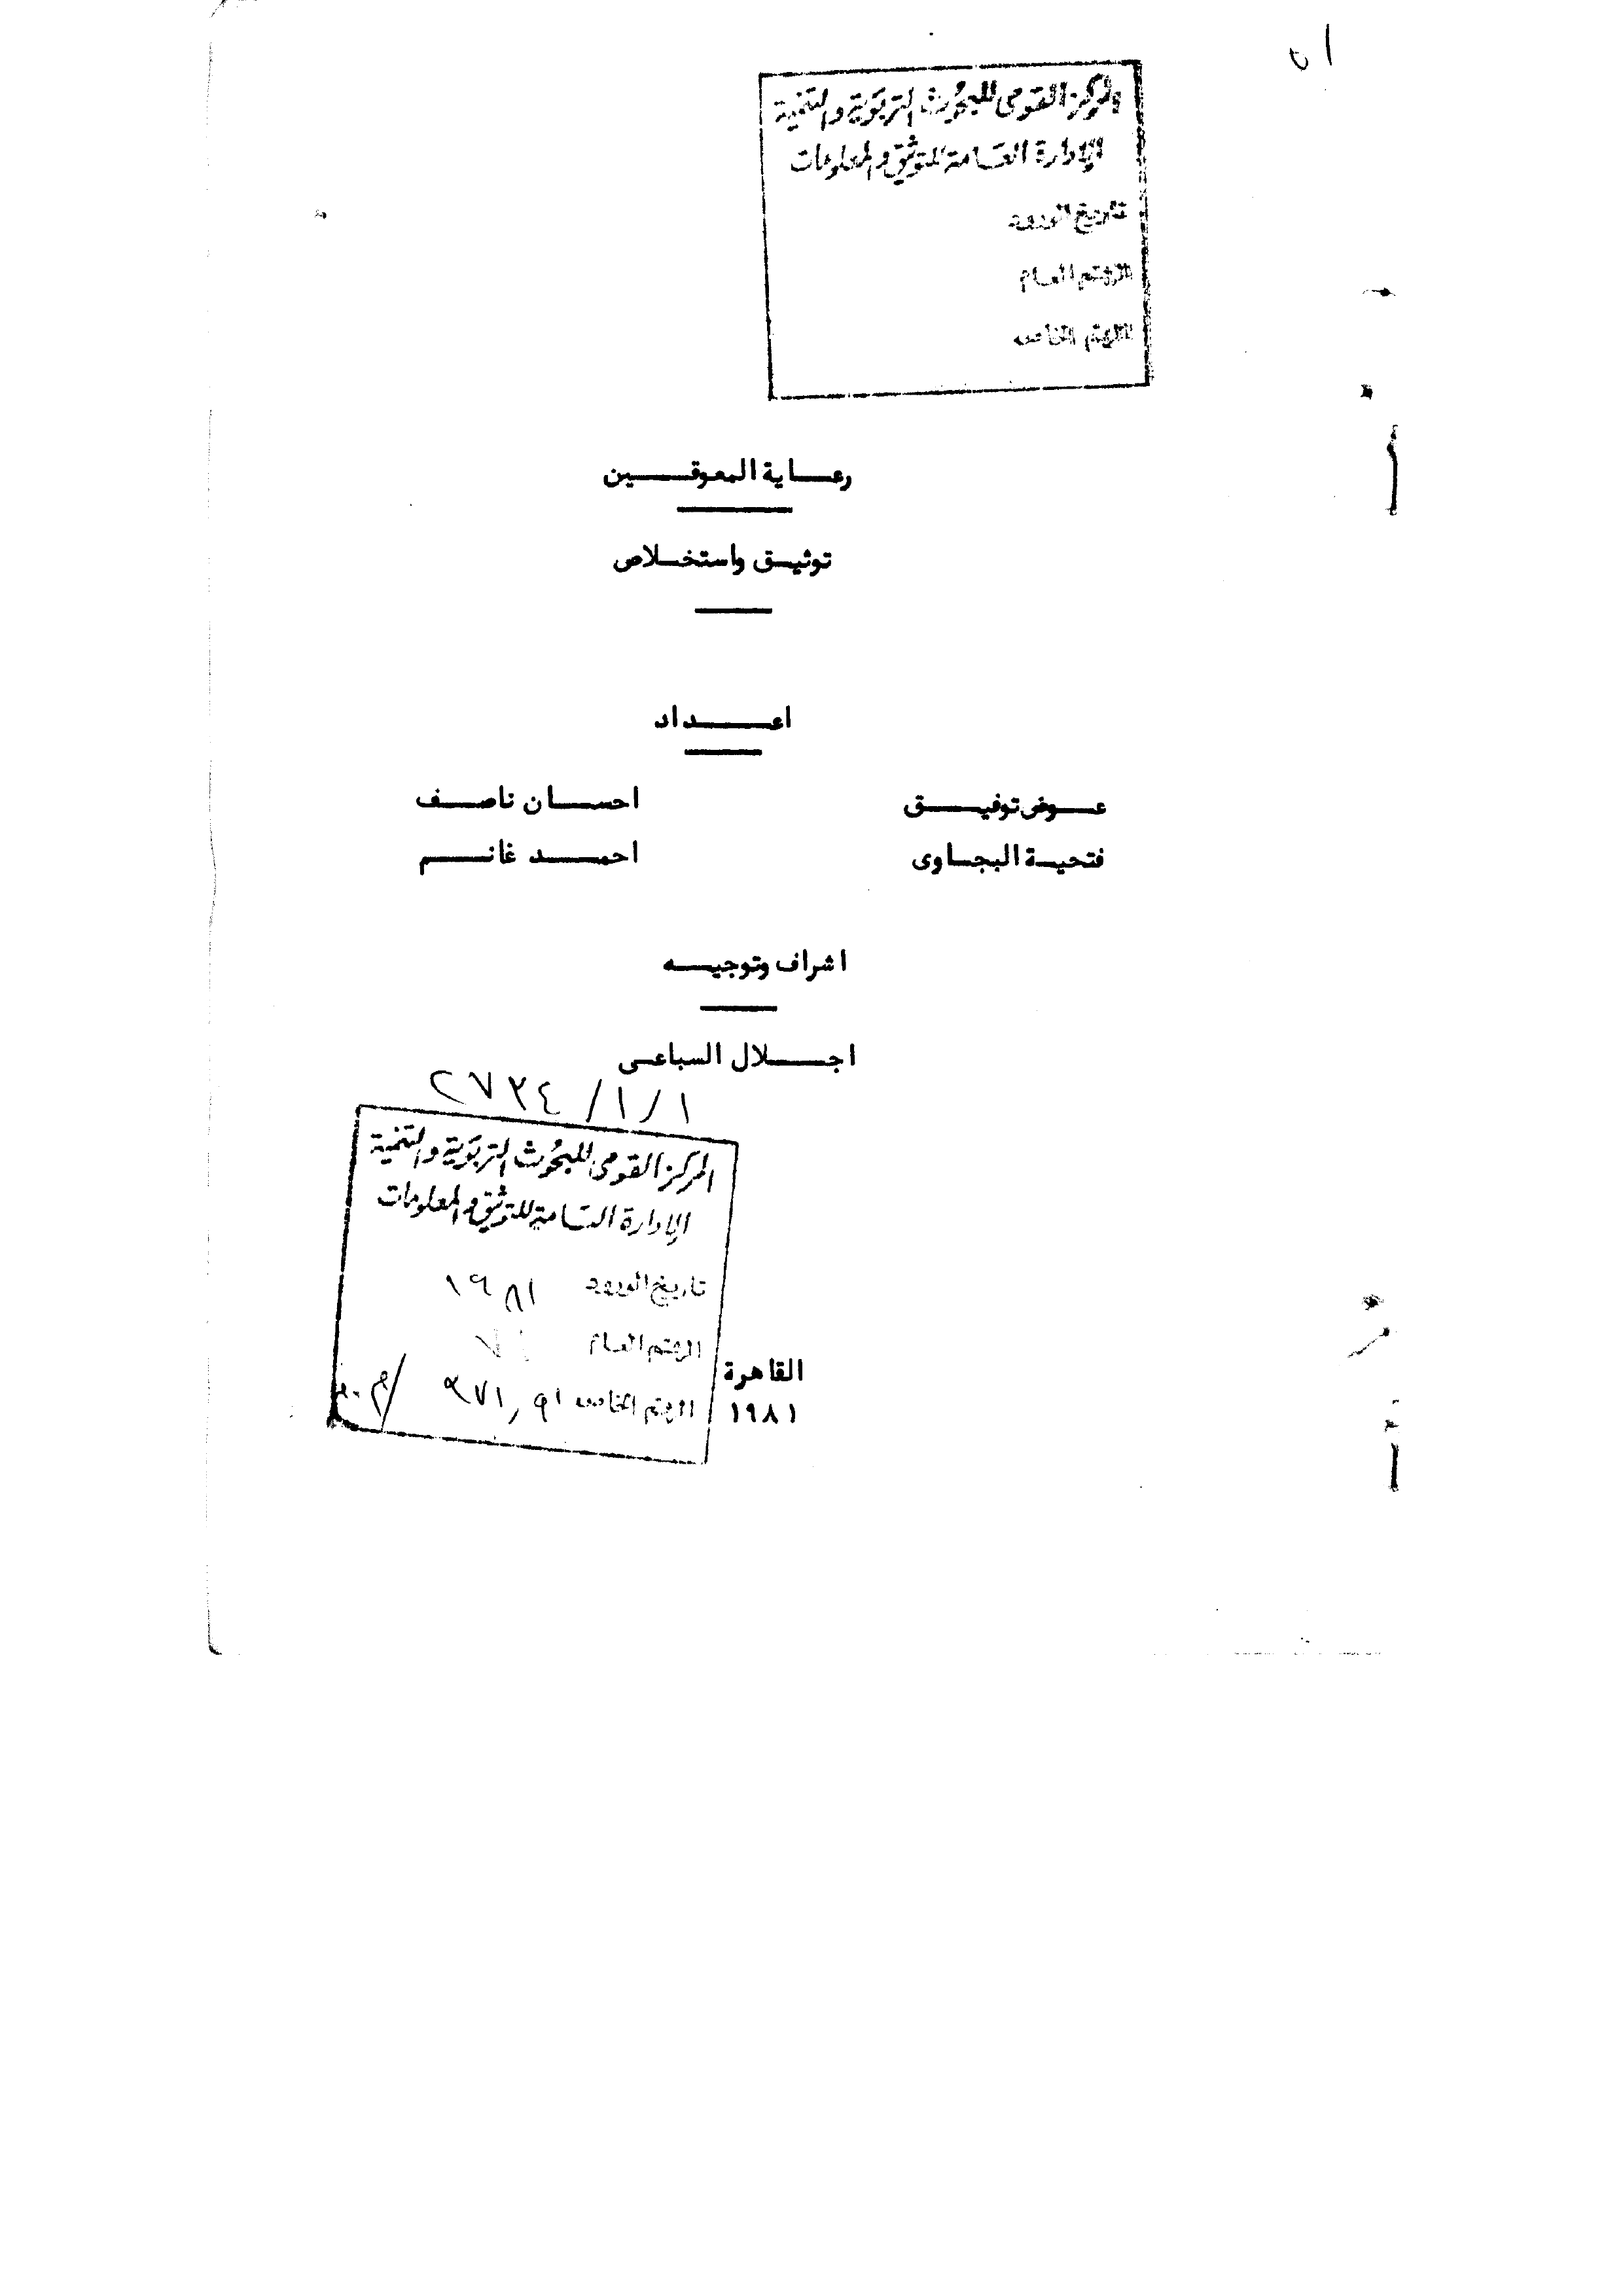 المركز القومى للبحوث التربوية والتنمية
الإدارة العامة للتوثيق والمعلومات
تاريخ الورود
الرقم العام
الرقم الخاص
رعاية المعوقين
توثيق واستخلاص
اعداد
عوض توفيق احسان ناصف
فتحية البجاوى احمد غانم
اشراف وتوجيه
اجلال السباعى
١/١/ ٢٧٣٤
المركز القومى للبحوث التربوية والتنمية
الإدارة العامة للتوثيق والمعلومات
تاريخ الورود
الرقم العام
الرقم الخاص
القاهرة
١٩٨١